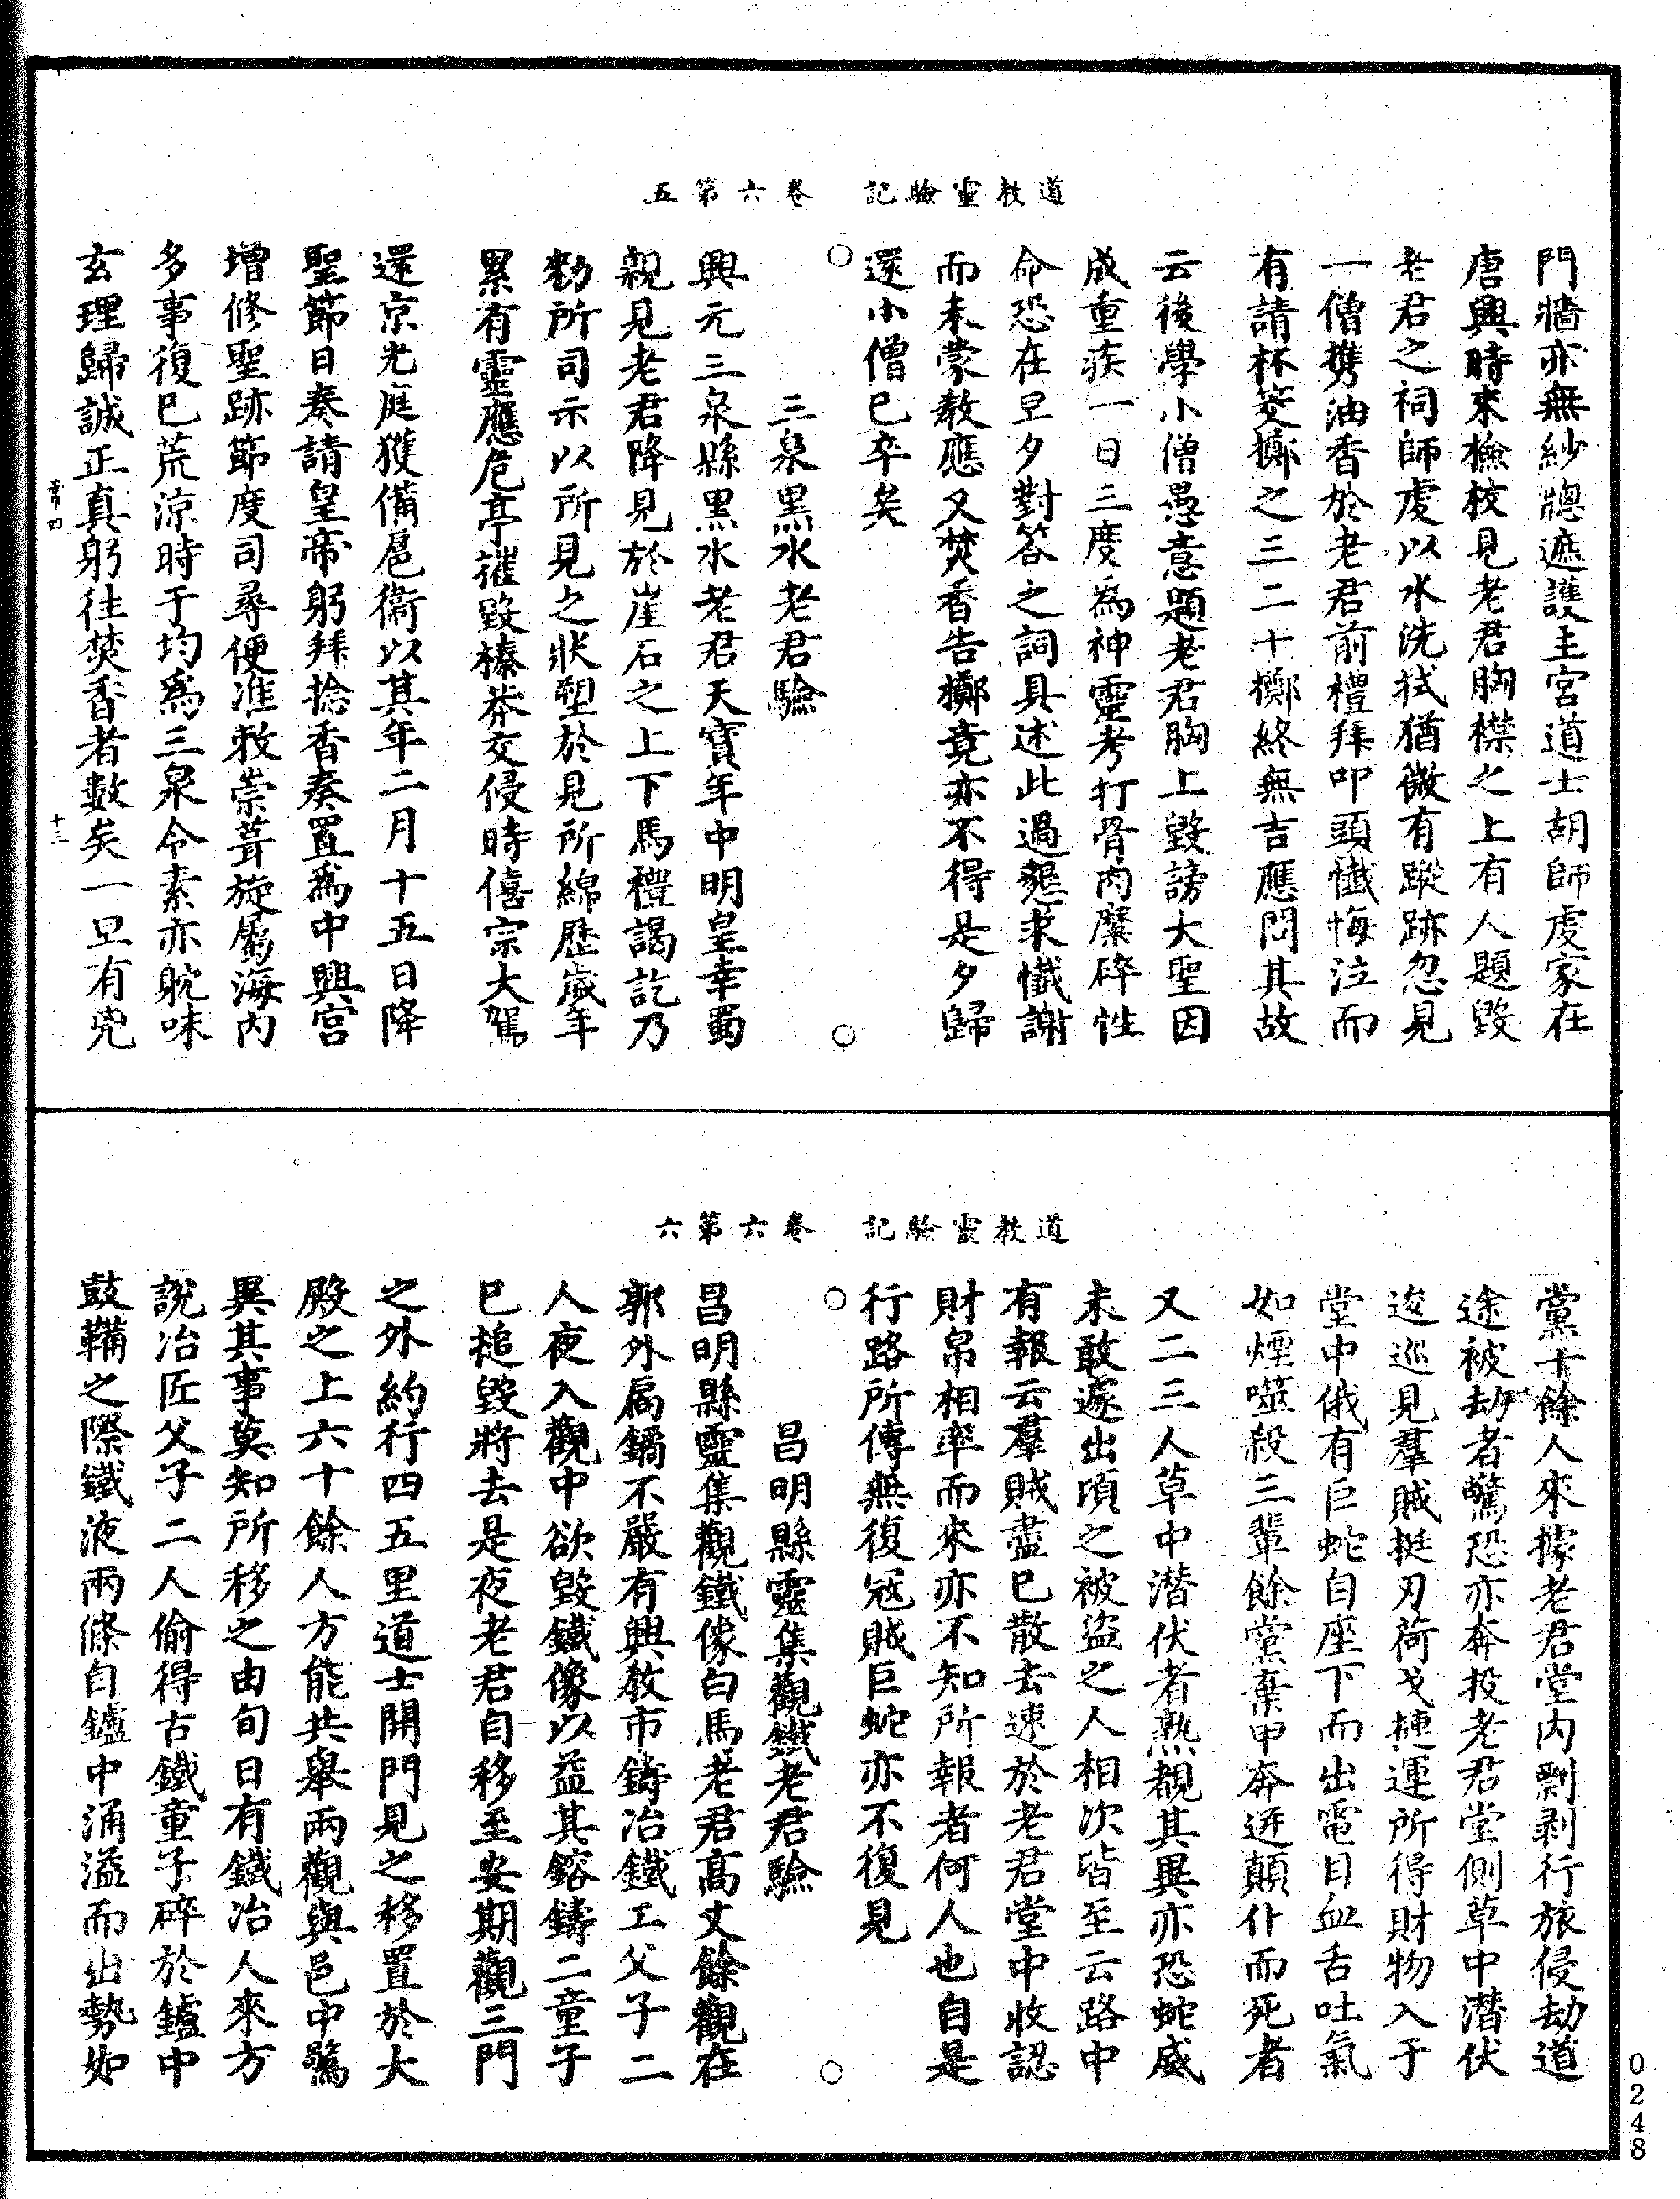 道教靈驗記　卷六第五
門牆亦無紗牕遮護主宮道士胡師虔家在
唐興時來檢校見老君胸襟之上有人題毀
老君之祠師虔以水洗拭猶微有蹤跡忽見
一僧携油香於老君前禮拜叩頭懺悔泣而
有請杯筊擲之三二十擲終無吉應問其故
云後學小僧愚意題老君胸上毀謗大聖因
成重疾一日三度為神靈考打骨肉糜碎性
命恐在旦夕對答之詞具述此過懇求懺謝
而未蒙教應又焚香告擲竟亦不得是夕歸
還小僧已卒矣
○　三泉黑水老君驗　○
興元三泉縣黑水老君天寶年中明皇幸蜀
親見老君降見於崖石之上下馬禮謁訖乃
勑所司示以所見之狀塑於見所綿歷歲年
累有靈應危亭摧毀榛莽交侵時僖宗大駕
還京光庭獲備扈衛以其年二月十五日降
聖節日奏請皇帝躬拜捻香奏置為中興宮
增修聖跡節度司尋便准敕崇葺旋屬海內
多事復已荒涼時于均為三泉令素亦躭味
玄理歸誠正真躬往焚香者數矣一旦有兇
常四　十三
道教靈驗記　卷六第六
黨十餘人來據老君堂內剽剥行旅侵劫道
途被劫者驚恐亦奔投老君堂側草中潛伏
逡巡見羣賊挺刃荷戈捷運所得財物入于
堂中俄有巨蛇自座下而出電目血舌吐氣
如煙噬殺三輩餘黨棄甲奔迸顛仆而死者
又二三人草中潛伏者熟覩其異亦恐蛇威
未敢遽出頃之被盜之人相次皆至云路中
有報云羣賊盡已散去速於老君堂中收認
財帛相率而來亦不知所報者何人也自是
行路所傳無復冦賊巨蛇亦不復見
○　昌明縣靈集觀鐵老君驗　○
昌明縣靈集觀鐵像白馬老君高丈餘觀在
郭外扃鐍不嚴有興教市鑄冶鐵工父子二
人夜入觀中欲毀鐵像以益其鎔鑄二童子
已搥毀將去是夜老君自移至安期觀三門
之外約行四五里道士開門見之移置於大
殿之上六十餘人方能共舉兩觀與邑中驚
異其事莫知所移之由旬日有鐵冶人來方
說冶匠父子二人偷得古鐵童子碎於鑪中
鼓鞴之際鐵液兩條自鑪中涌溢而出勢如
0248